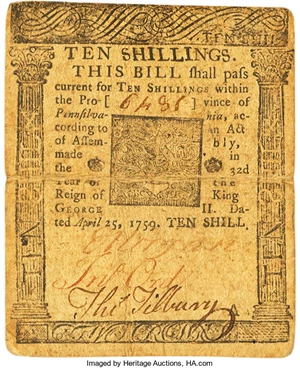 TEN SHILLINGS.
THIS BILL shall pass
current for TEN SHILLINGS within
the Pro- [ 6486 ] vince of
Pennsilva- nia, ac-
cording to an Act
of Assem- bly,
made in
the 32d
Year of the
Reign of King
GEORGE II. Da-
ted April 25, 1759. TEN SHILL.
Thos Tilbury
Imaged by Heritage Auctions, HA.com